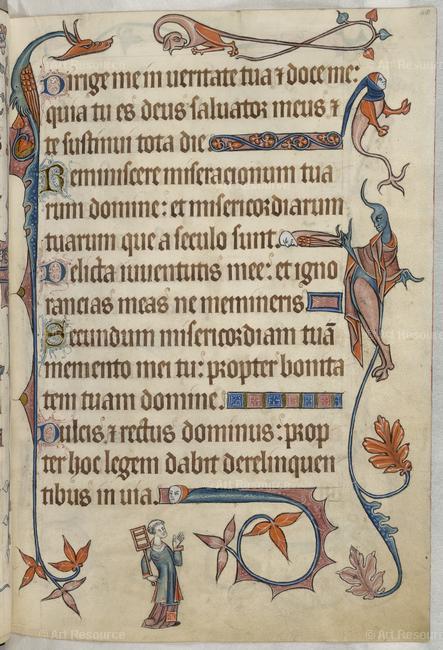 Dirige me in ueritate tua ⁊ doce me:
quia tu es deus saluator meus ⁊
te sustinui tota die
Reminiscere miseracionum tua
rum domine: et misericordiarum
tuarum que a seculo sunt.
Delicta iuuentutis mee: et igno
rancias meas ne memineris.
Secundum misericordiam tuā
memento mei tu: propter bonita
tem tuam domine.
Dulcis ⁊ rectus dominus: prop
ter hoc legem dabit derelinquen
tibus in uia.
© Art Resource